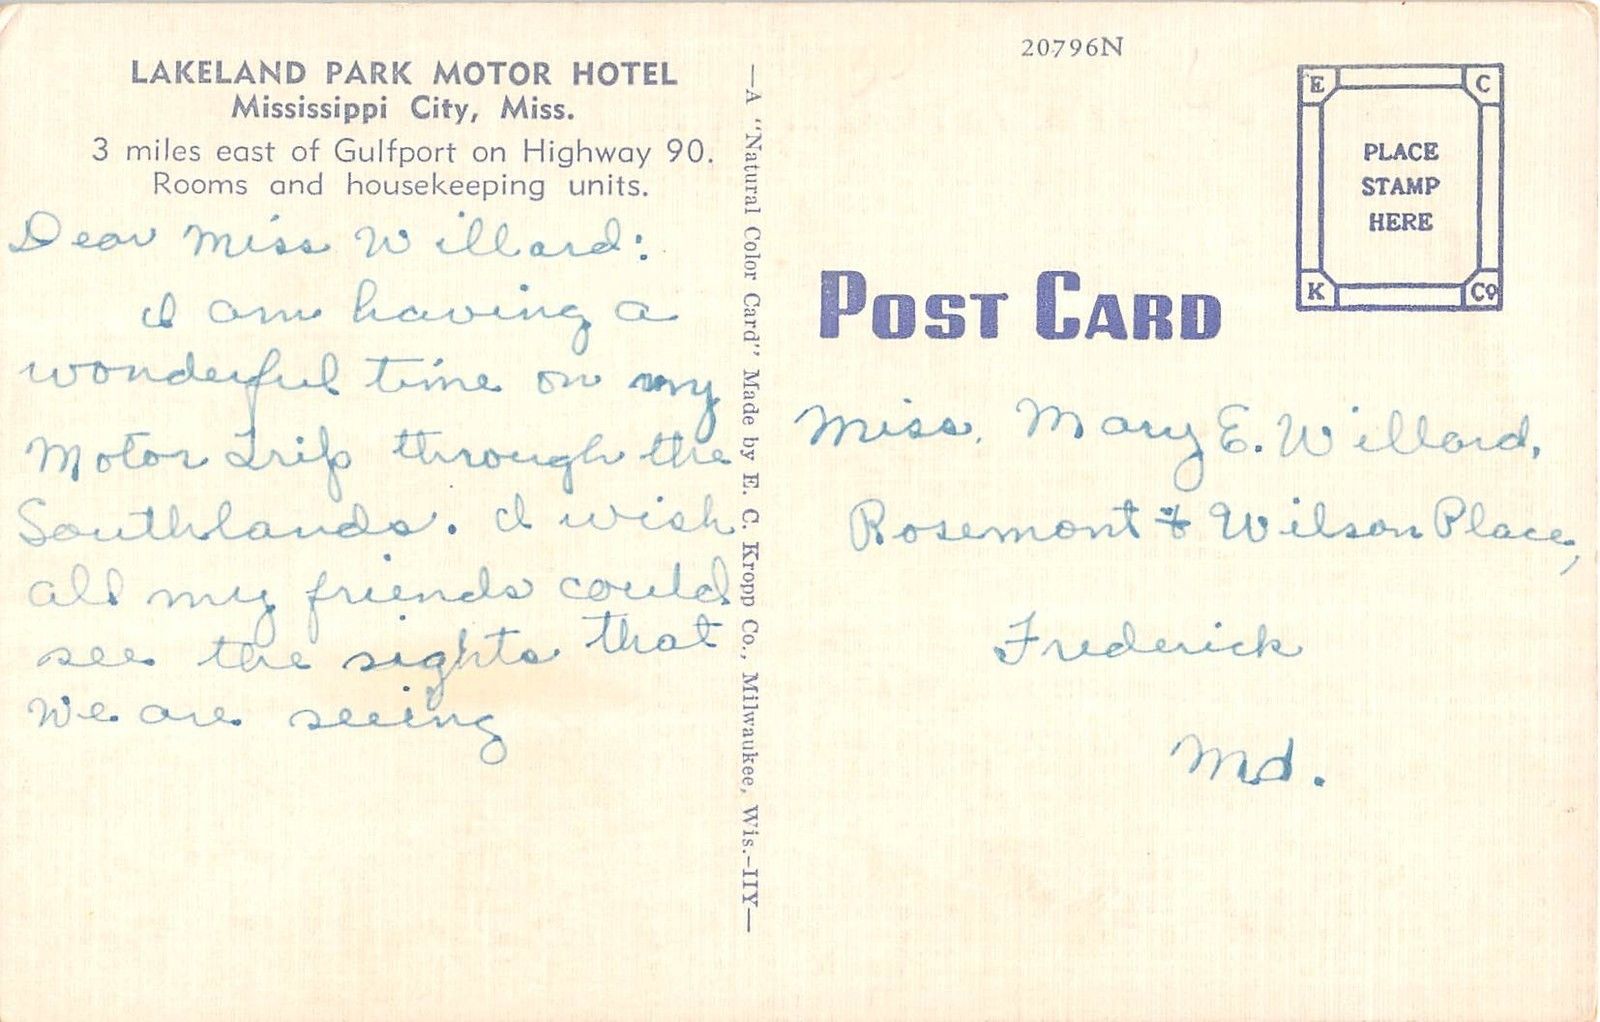 LAKELAND PARK MOTOR HOTEL
Mississippi City, Miss.
3 miles east of Gulfport on Highway 90.
Rooms and housekeeping units.
Dear Miss Willard:
I am having a
wonderful time on my
Motor Trip through the
Southlands. I wish
all my friends could
see the sights that
We are seeing
—A "Natural Color Card" Made by E. C. Kropp Co., Milwaukee, Wis.—11Y—
20796N
E C
PLACE
STAMP
HERE
K Co
POST CARD
Miss. Mary E. Willard,
Rosemont & Wilson Place,
Frederick
Md.